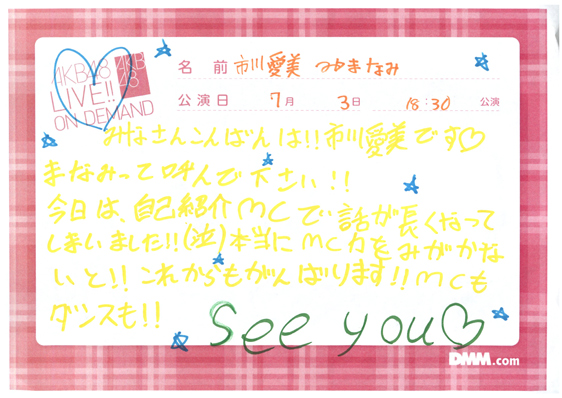 AKB48
LIVE!!
ON DEMAND
AKB
48
名 前 市川愛美 みゆまなみ
公演日 7月 3日 18:30 公演
みなさんこんばんは!!市川愛美です♡
まなみって呼んで下さい!!
今日は、自己紹介MCで話が長くなって
しまいました!!(泣)本当にMC力をみがかな
いと!!これからもがんばります!!MCも
ダンスも!!
See you♡
DMM.com